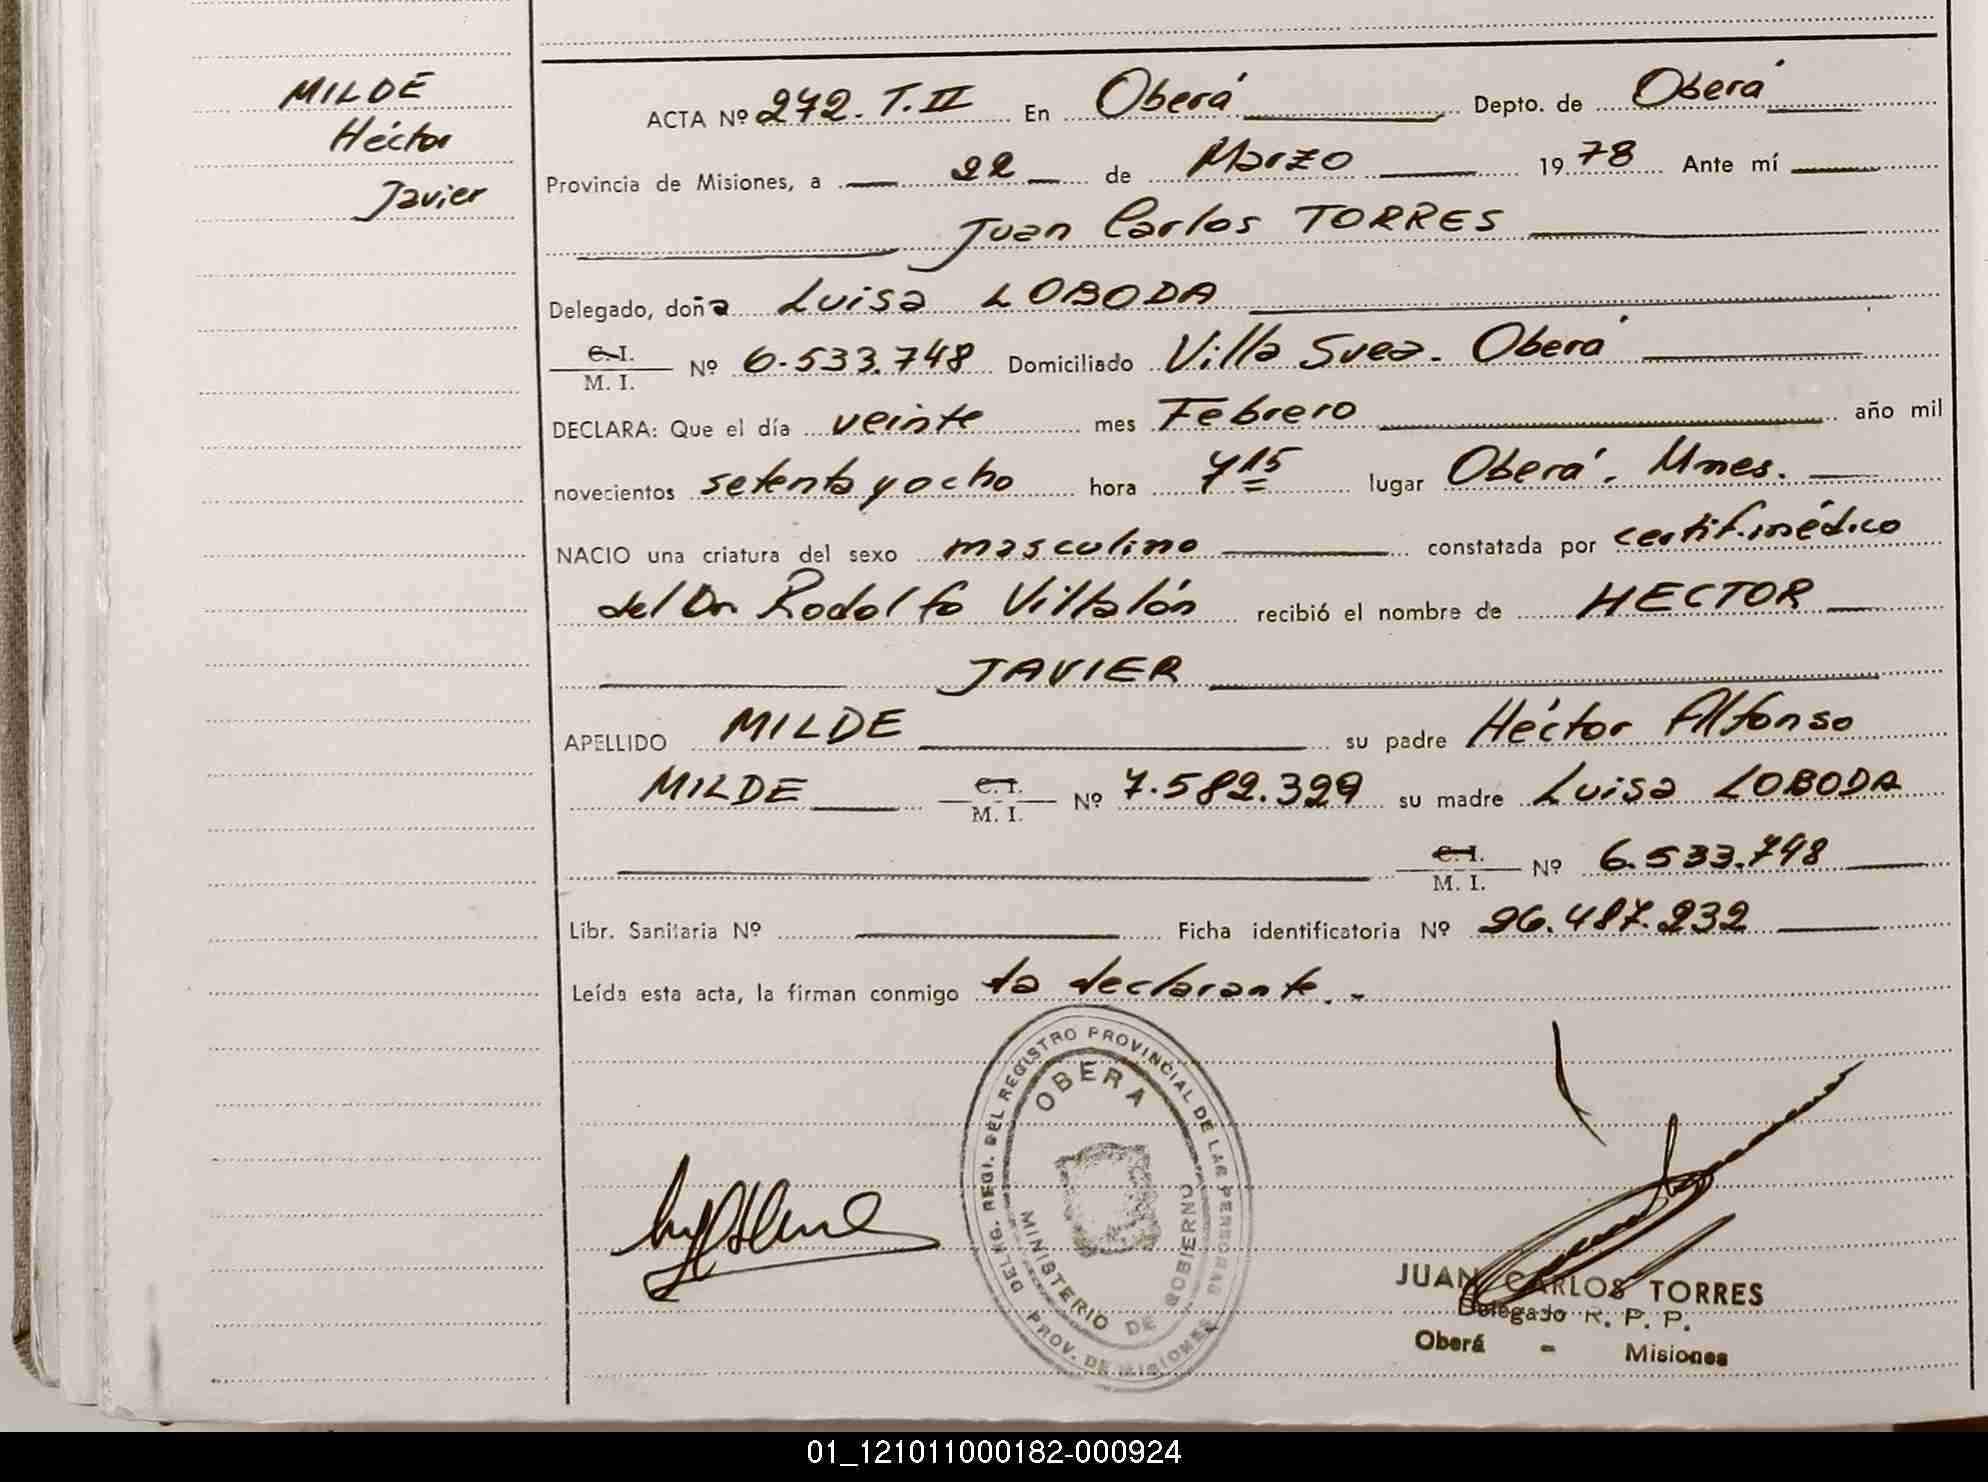 MILDE
Héctor
Javier
ACTA Nº 272. T. II En Oberá Depto. de Oberá
Provincia de Misiones, a 22 de Marzo 1978 Ante mí
Juan Carlos TORRES
Delegado, doña Luisa LOBODA
C. I.
M. I. Nº 6.533.748 Domiciliado Villa Svea. Oberá
DECLARA: Que el día veinte mes Febrero año mil
novecientos setenta y ocho hora 7 15 lugar Oberá. Mnes.
NACIO una criatura del sexo masculino constatada por certif. médico
del Dr. Rodolfo Villalón recibió el nombre de HECTOR
JAVIER
APELLIDO MILDE su padre Héctor Alfonso
MILDE C. I. M. I. Nº 7.582.329 su madre Luisa LOBODA
C. I.
M. I. Nº 6.533.748
Libr. Sanitaria Nº Ficha identificatoria Nº 26.487.232
Leída esta acta, la firman conmigo la declarante.-
DELEG. REGI. DEL REGISTRO PROVINCIAL DE LAS PERSONAS
OBERA
MINISTERIO DE GOBIERNO
PROV. DE MISIONES
JUAN CARLOS TORRES
Delegado R. P. P.
Oberá - Misiones
01_121011000182-000924